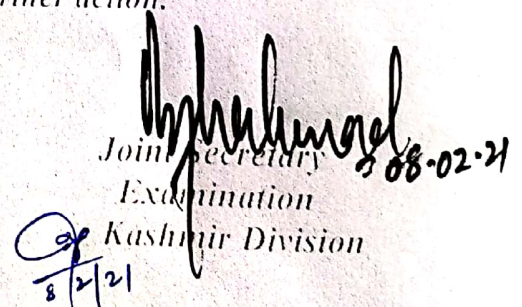 action.
08-02-21
Joint Secretary
Examination
Kashmir Division
8/2/21